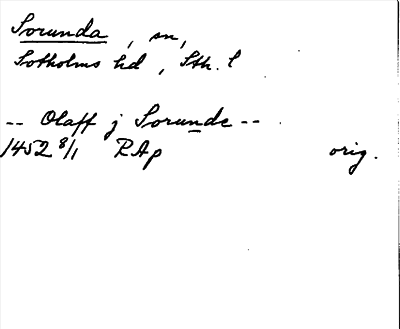 Sorunda, sn,
Sotholms hd, Sth. l
-- Olaff j Sorunde --
1452 8/1 RAp orig.